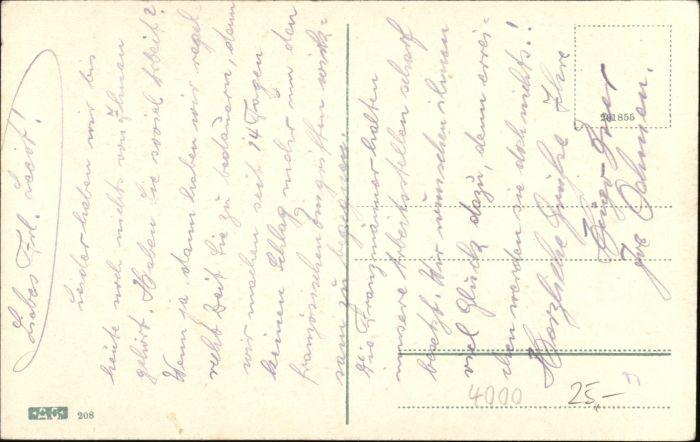 Liebes Frl. Leist!
Leider haben wir bis
heute noch nichts von Ihnen
gehört. Haben Sie soviel Arbeit?
Wenn ja, dann haben wir regel-
recht Zeit Sie zu bedauern, denn
wir machen seit 14 Tagen
keinen Schlag mehr um den
französischen Angriffen wirk-
sam zu begegnen.
Die Franzmänner halten
unsere Arbeitsstellen scharf
besetzt. Wir wünschen ihnen
viel Glück dazu, denn errei-
chen werden sie doch nichts!
Herzliche Grüße Ihre
201855
208
4000
25,-